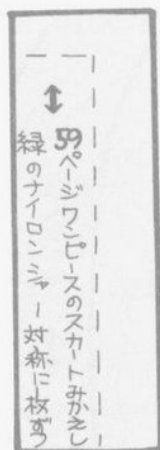 59ページワンピースのスカートみかえし
緑のナイロンシャー対称に一枚ずつ